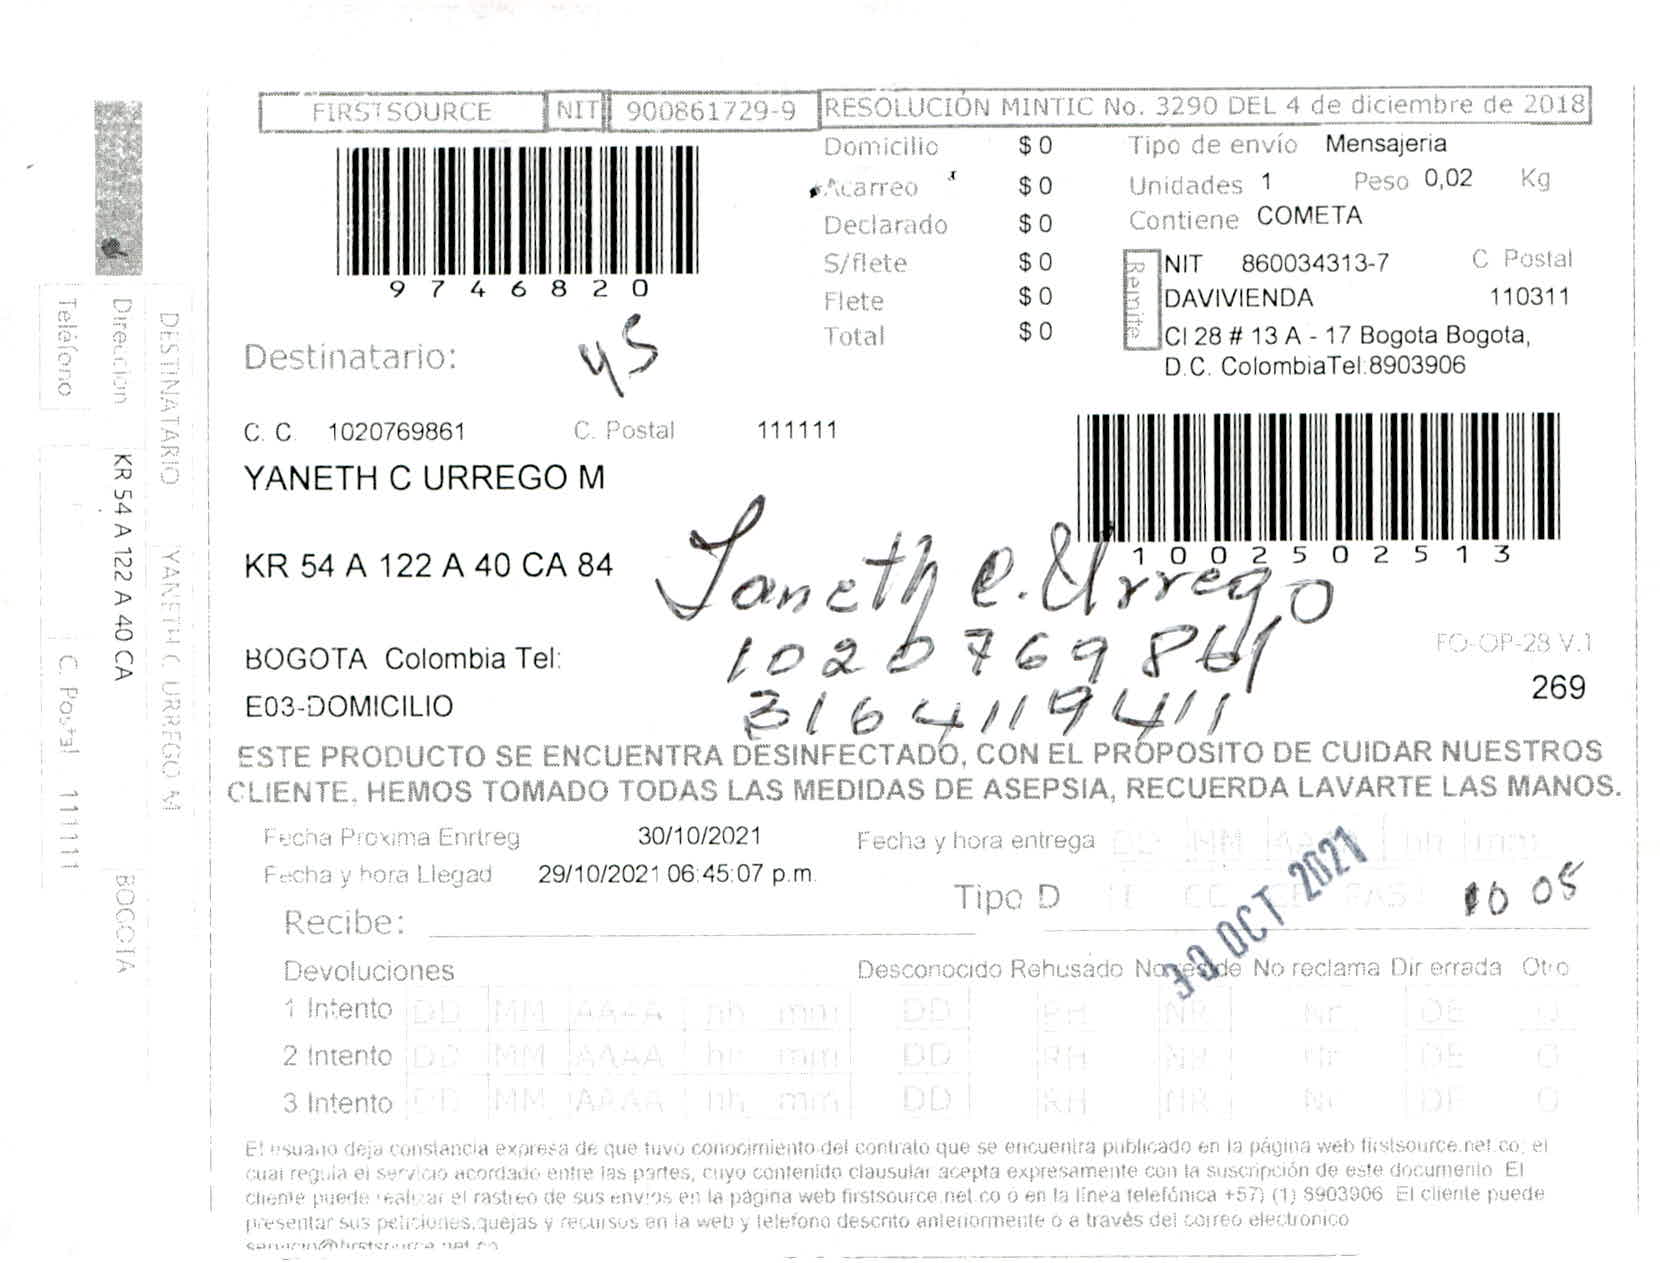 FIRSTSOURCE NIT 900861729-9 RESOLUCIÓN MINTIC No. 3290 DEL 4 de diciembre de 2018
9746820
Domicilio $ 0
Acarreo $ 0
Declarado $ 0
S/flete $ 0
Flete $ 0
Total $ 0
Tipo de envío Mensajeria
Unidades 1 Peso 0,02 Kg
Contiene COMETA
Remite
NIT 860034313-7 C Postal
DAVIVIENDA 110311
Cl 28 # 13 A - 17 Bogota Bogota,
D.C. ColombiaTel:8903906
Destinatario:
45
C. C. 1020769861 C. Postal 111111
YANETH C URREGO M
1002502513
KR 54 A 122 A 40 CA 84
Yaneth C. Urrego
1020769861
3164119411
BOGOTA Colombia Tel:
E03-DOMICILIO
FO-OP-28 V.1
269
ESTE PRODUCTO SE ENCUENTRA DESINFECTADO, CON EL PROPOSITO DE CUIDAR NUESTROS
CLIENTE, HEMOS TOMADO TODAS LAS MEDIDAS DE ASEPSIA, RECUERDA LAVARTE LAS MANOS.
Fecha Proxima Enrtreg 30/10/2021 Fecha y hora entrega DD MM AAAA hh mm
Fecha y hora Llegad 29/10/2021 06:45:07 p.m.
Tipo D CC CE PAS
10 05
30 OCT 2021
Recibe:
Devoluciones Desconocido Rehusado No reside No reclama Dir errada Otro
1 Intento DD MM AAAA hh mm DD RH NR Nr DE O
2 Intento DD MM AAAA hh mm DD RH NR Nr DE O
3 Intento DD MM AAAA hh mm DD RH NR Nr DE O
El usuario deja constancia expresa de que tuvo conocimiento del contrato que se encuentra publicado en la página web firstsource.net.co, el
cual regula el servicio acordado entre las partes, cuyo contenido clausular acepta expresamente con la suscripción de este documento El
cliente puede realizar el rastreo de sus envios en la página web firstsource.net.co o en la línea telefónica +57) (1) 8903906 El cliente puede
presentar sus peticiones,quejas y recursos en la web y telefono descrito anteriormente o a través del correo electronico
servicio@firstsource.net.co
DESTINATARIO YANETH C URREGO M
Direccion KR 54 A 122 A 40 CA BOGOTA
Teléfono C. Postal 111111